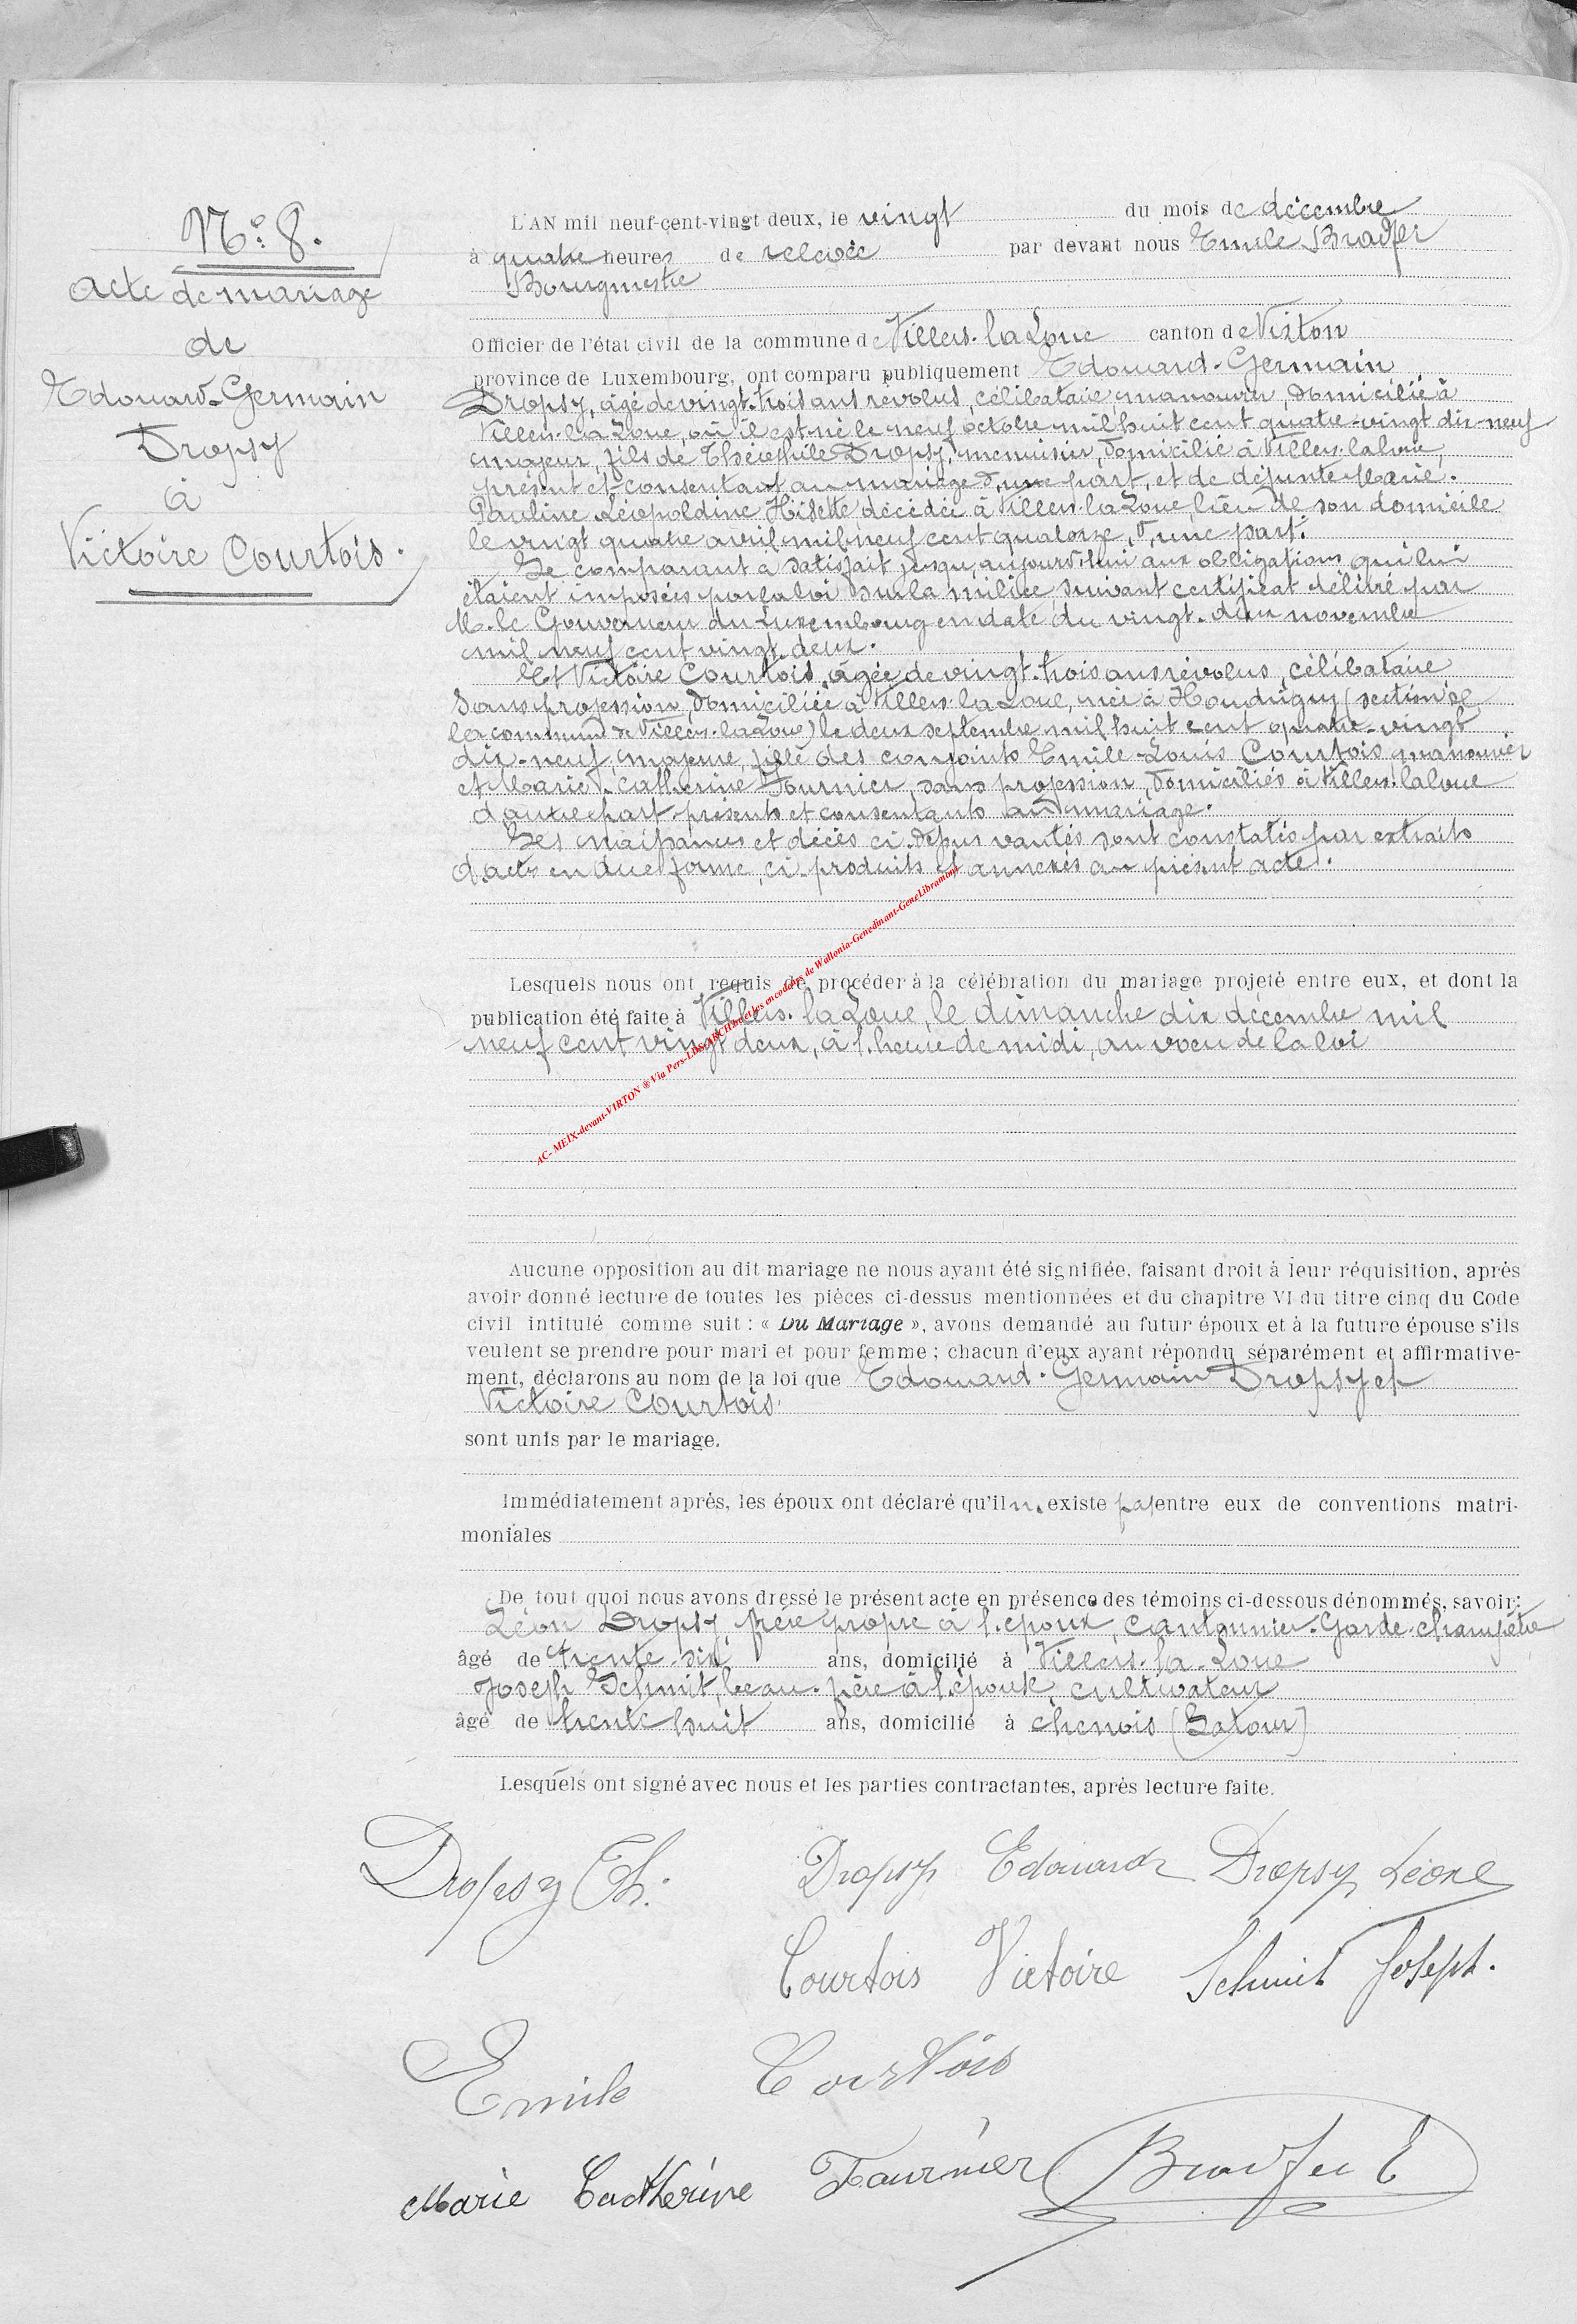 N° 8.
Acte de mariage
de
Edouard-Germain
Dropsy
à
Victoire Courtois.
L'AN mil neuf-cent-vingt deux, le vingt du mois de décembre
à quatre heures de relevée par devant nous Emile Bradfer
Bourgmestre
Officier de l'état civil de la commune de Villers-la Loue canton de Virton
province de Luxembourg, ont comparu publiquement Edouard-Germain
Dropsy, âgé de vingt-trois ans révolus, célibataire, manouvrier, domicilié à
Villers-la Loue, où il est né le neuf octobre mil huit cent quatre-vingt dix-neuf
majeur, fils de Théophile Dropsy, menuisier, domicilié à Villers-laloue,
présent et consentant au mariage d'une part, et de défunte Marie-
Pauline Léopoldine Hisette, décédée à Villers-la Loue, lieu de son domicile
le vingt quatre avril mil neuf cent quatorze, d'une part.
Le comparant a satisfait jusqu'aujourd'hui aux obligations qui lui
étaient imposées par la loi sur la milice, suivant certificat délivré par
M. le Gouverneur du Luxembourg en date du vingt-deux novembre
mil neuf cent vingt-deux.
Et Victoire Courtois, âgée de vingt-trois ans révolus, célibataire
sans profession, domiciliée à Villers-la Loue, née à Houdrigny (section de
la commune de Villers-la Loue) le deux septembre mil huit cent quatre-vingt
dix-neuf, majeure, fille des conjoints Emile-Louis Courtois manouvrier
et Marie-Catherine Fournier, sans profession, domiciliés à Villers-laloue
d'autre part présents et consentants au mariage.
Les naissances et décès ci-dessus vantés sont constatés par extraits
d'actes en due forme, ci-produits et annexés au présent acte.
Lesquels nous ont requis de procéder à la célébration du mariage projeté entre eux, et dont la
publication été faite à Villers-la Loue, le dimanche dix décembre mil
neuf cent vingt deux, à l'heure de midi, au voeu de la loi
AC- MEIX-devant-VIRTON ® Via Pers-LDS-ARCH.be et les encodeurs de Wallonia-Genedinant-GeneLibramont
Aucune opposition au dit mariage ne nous ayant été signifiée, faisant droit à leur réquisition, après
avoir donné lecture de toutes les pièces ci-dessus mentionnées et du chapitre VI du titre cinq du Code
civil intitulé comme suit : « Du Mariage », avons demandé au futur époux et à la future épouse s'ils
veulent se prendre pour mari et pour femme ; chacun d'eux ayant répondu séparément et affirmative-
ment, déclarons au nom de la loi que Edouard-Germain Dropsy et
Victoire Courtois
sont unis par le mariage.
Immédiatement après, les époux ont déclaré qu'il n'existe pas entre eux de conventions matri-
moniales
De tout quoi nous avons dressé le présent acte en présence des témoins ci-dessous dénommés, savoir:
Léon Dropsy, frère propre à l'époux, Cantonnier-Garde-champêtre
âgé de trente-six ans, domicilié à Villers-la-Loue
Joseph Schmit, beau-père à l'époux, cultivateur
âgé de trente huit ans, domicilié à chenois (Latour)
Lesquels ont signé avec nous et les parties contractantes, après lecture faite.
Dropsy Th. Dropsy Edouard Dropsy Léon
Courtois Victoire Schmit Joseph.
Emile Courtois
Marie Catherine Fournier Bradfer E